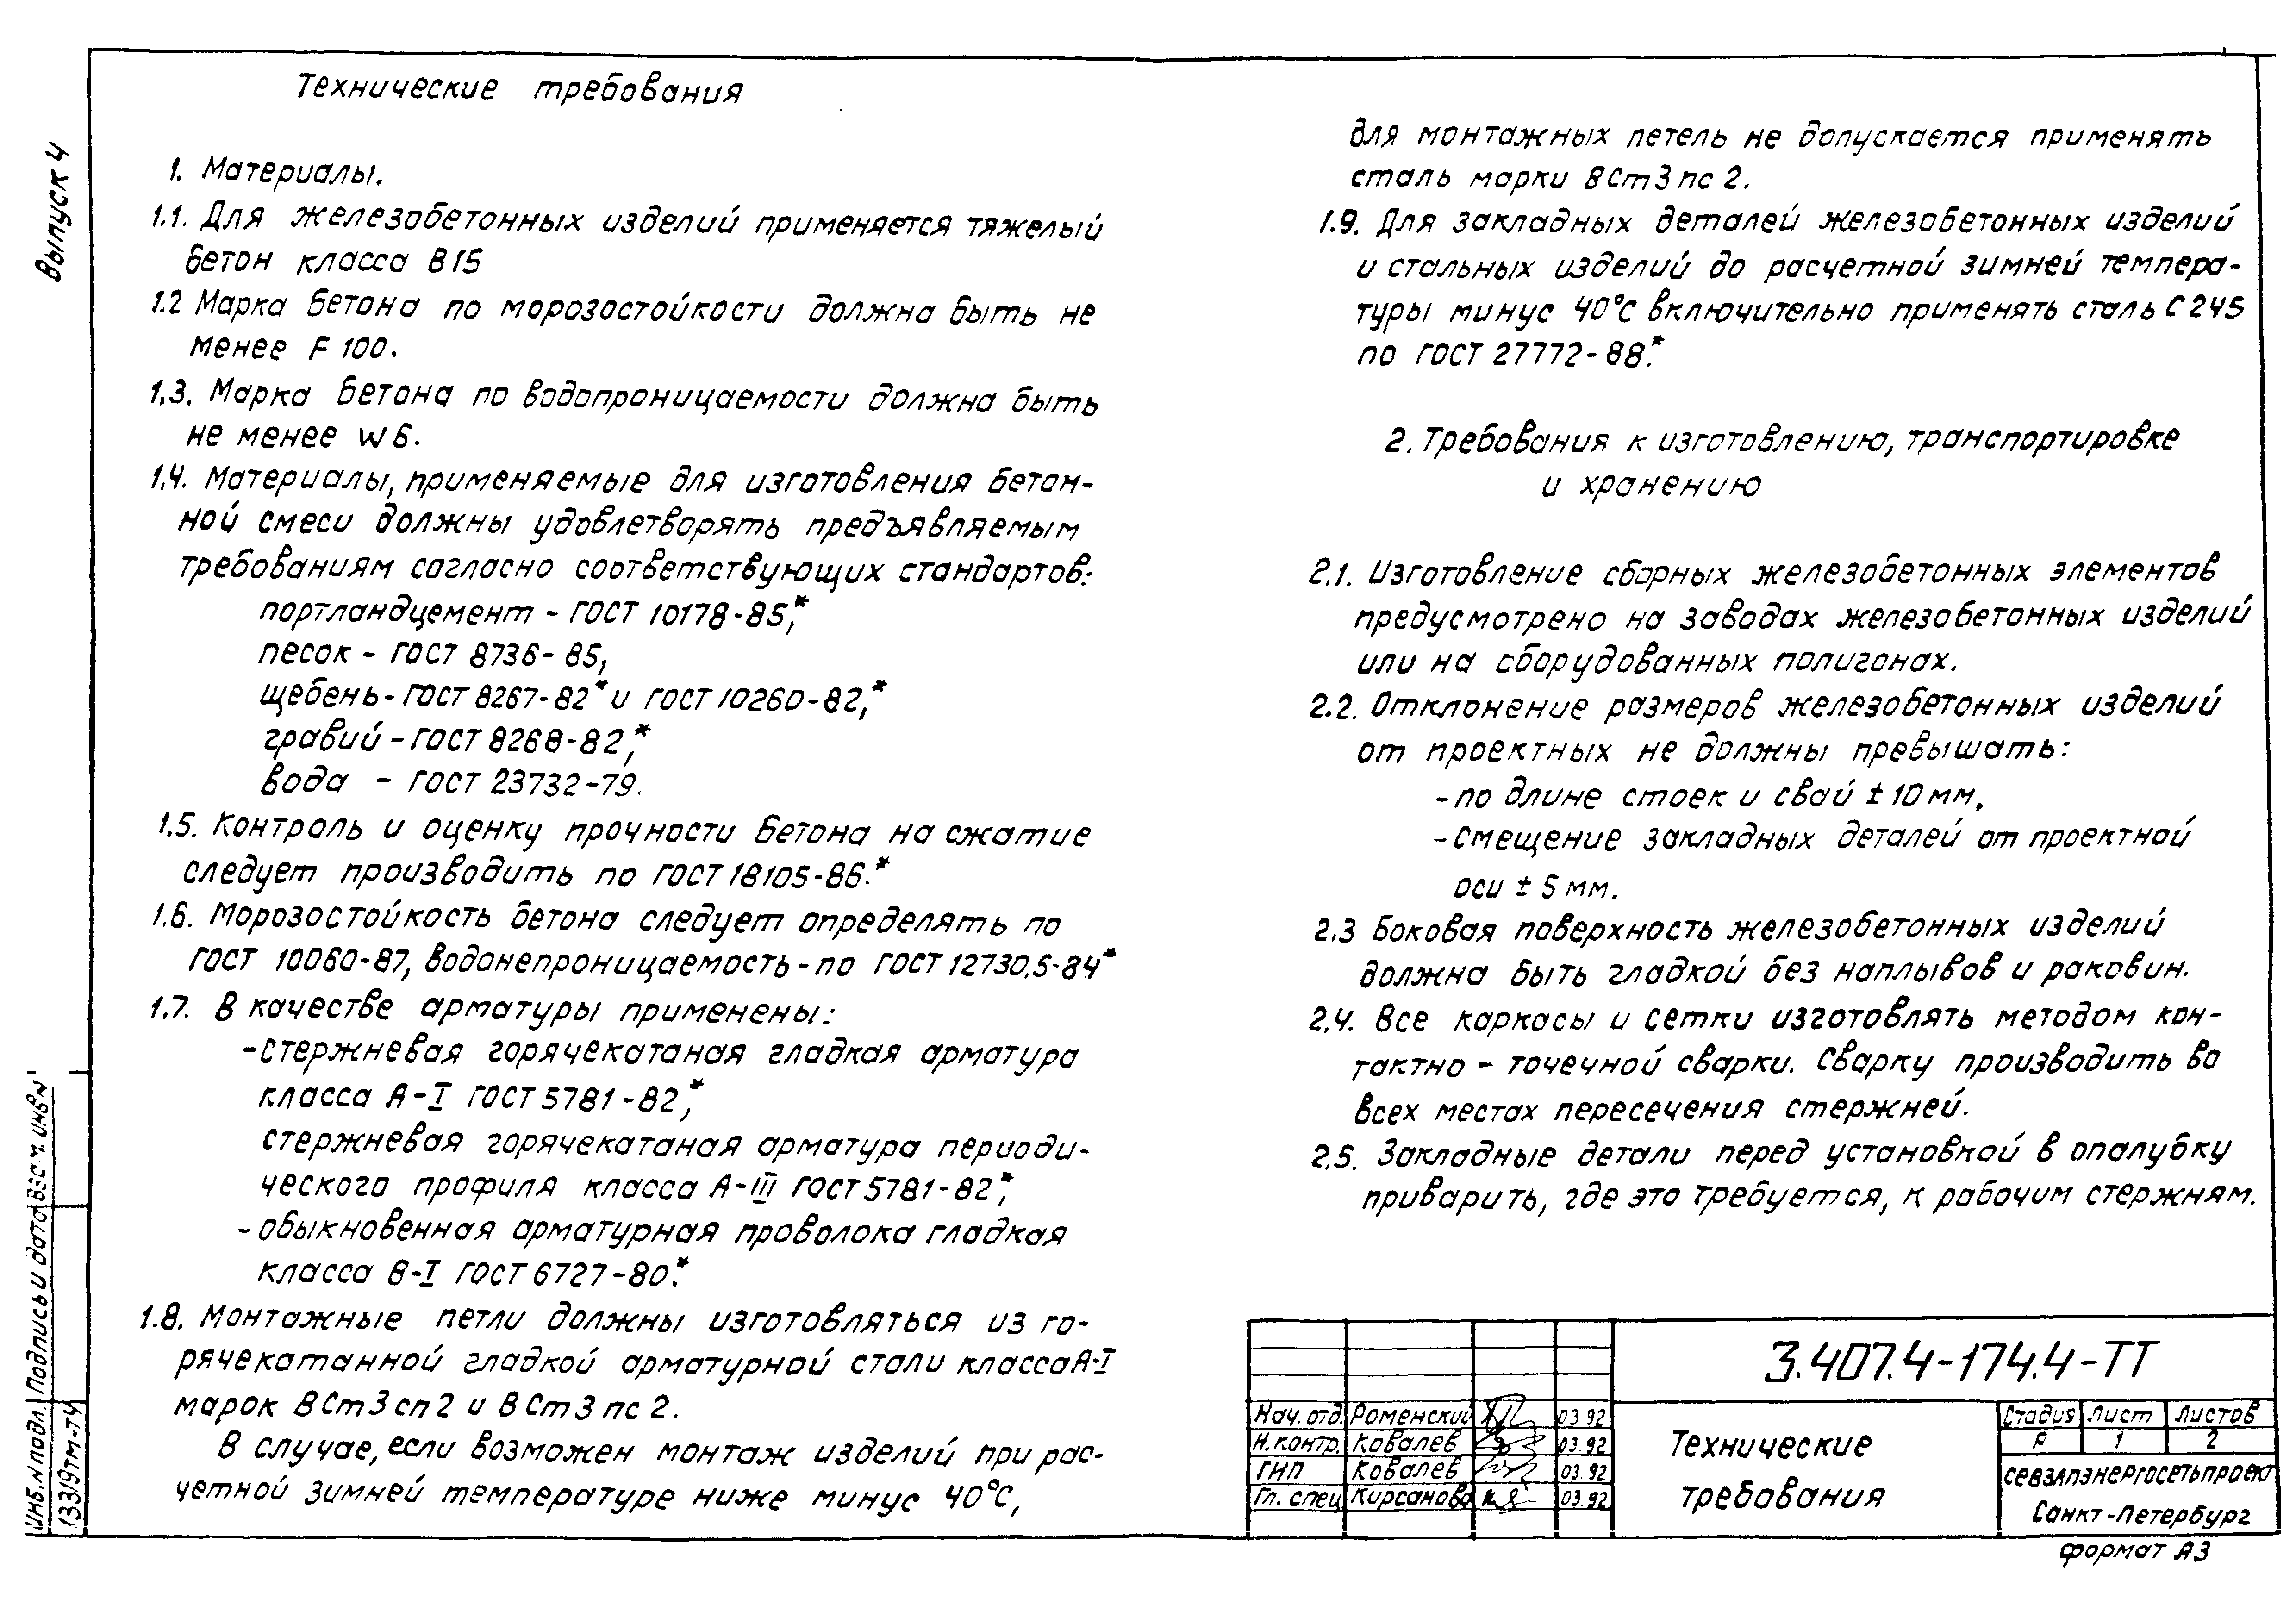 Выпуск 4
Технические требования
1. Материалы.
1.1. Для железобетонных изделий применяется тяжелый
бетон класса В15
1.2 Марка бетона по морозостойкости должна быть не
менее F 100.
1.3. Марка бетона по водопроницаемости должна быть
не менее W6.
1.4. Материалы, применяемые для изготовления бетон-
ной смеси должны удовлетворять предъявляемым
требованиям согласно соответствующих стандартов:
портландцемент - ГОСТ 10178-85,*
песок - ГОСТ 8736-85,
щебень - ГОСТ 8267-82* и ГОСТ 10260-82,*
гравий - ГОСТ 8268-82,*
вода - ГОСТ 23732-79.
1.5. Контроль и оценку прочности бетона на сжатие
следует производить по ГОСТ 18105-86.*
1.6. Морозостойкость бетона следует определять по
ГОСТ 10060-87, водонепроницаемость - по ГОСТ 12730,5-84*
1.7. В качестве арматуры применены:
- стержневая горячекатаная гладкая арматура
класса А-I ГОСТ 5781-82,*
стержневая горячекатаная арматура периоди-
ческого профиля класса А-III ГОСТ 5781-82,*
- обыкновенная арматурная проволока гладкая
класса В-I ГОСТ 6727-80.*
1.8. Монтажные петли должны изготовляться из го-
рячекатанной гладкой арматурной стали класса А-I
марок ВСт3сп2 и ВСт3пс2.
В случае, если возможен монтаж изделий при рас-
четной зимней температуре ниже минус 40°С,
для монтажных петель не допускается применять
сталь марки ВСт3пс2.
1.9. Для закладных деталей железобетонных изделий
и стальных изделий до расчетной зимней темпера-
туры минус 40°С включительно применять сталь С245
по ГОСТ 27772-88.*
2. Требования к изготовлению, транспортировке
и хранению
2.1. Изготовление сборных железобетонных элементов
предусмотрено на заводах железобетонных изделий
или на сборудованных полигонах.
2.2. Отклонение размеров железобетонных изделий
от проектных не должны превышать:
- по длине стоек и свай ± 10 мм,
- смещение закладных деталей от проектной
оси ± 5 мм.
2.3 Боковая поверхность железобетонных изделий
должна быть гладкой без наплывов и раковин.
2.4. Все каркасы и сетки изготовлять методом кон-
тактно - точечной сварки. Сварку производить во
всех местах пересечения стержней.
2.5. Закладные детали перед установкой в опалубку
приварить, где это требуется, к рабочим стержням.
Инв.N подл. Подпись и дата Взам. инв N
13319тм-т4
3.407.4-174.4-ТТ
Нач. отд. Роменский 03.92
Н. контр. Ковалев 03.92
ГИП Ковалев 03.92
Гл. спец Кирсанова 03.92
Технические
требования
Стадия Лист Листов
Р 1 2
Севзапэнергосетьпроект
Санкт-Петербург
формат А3